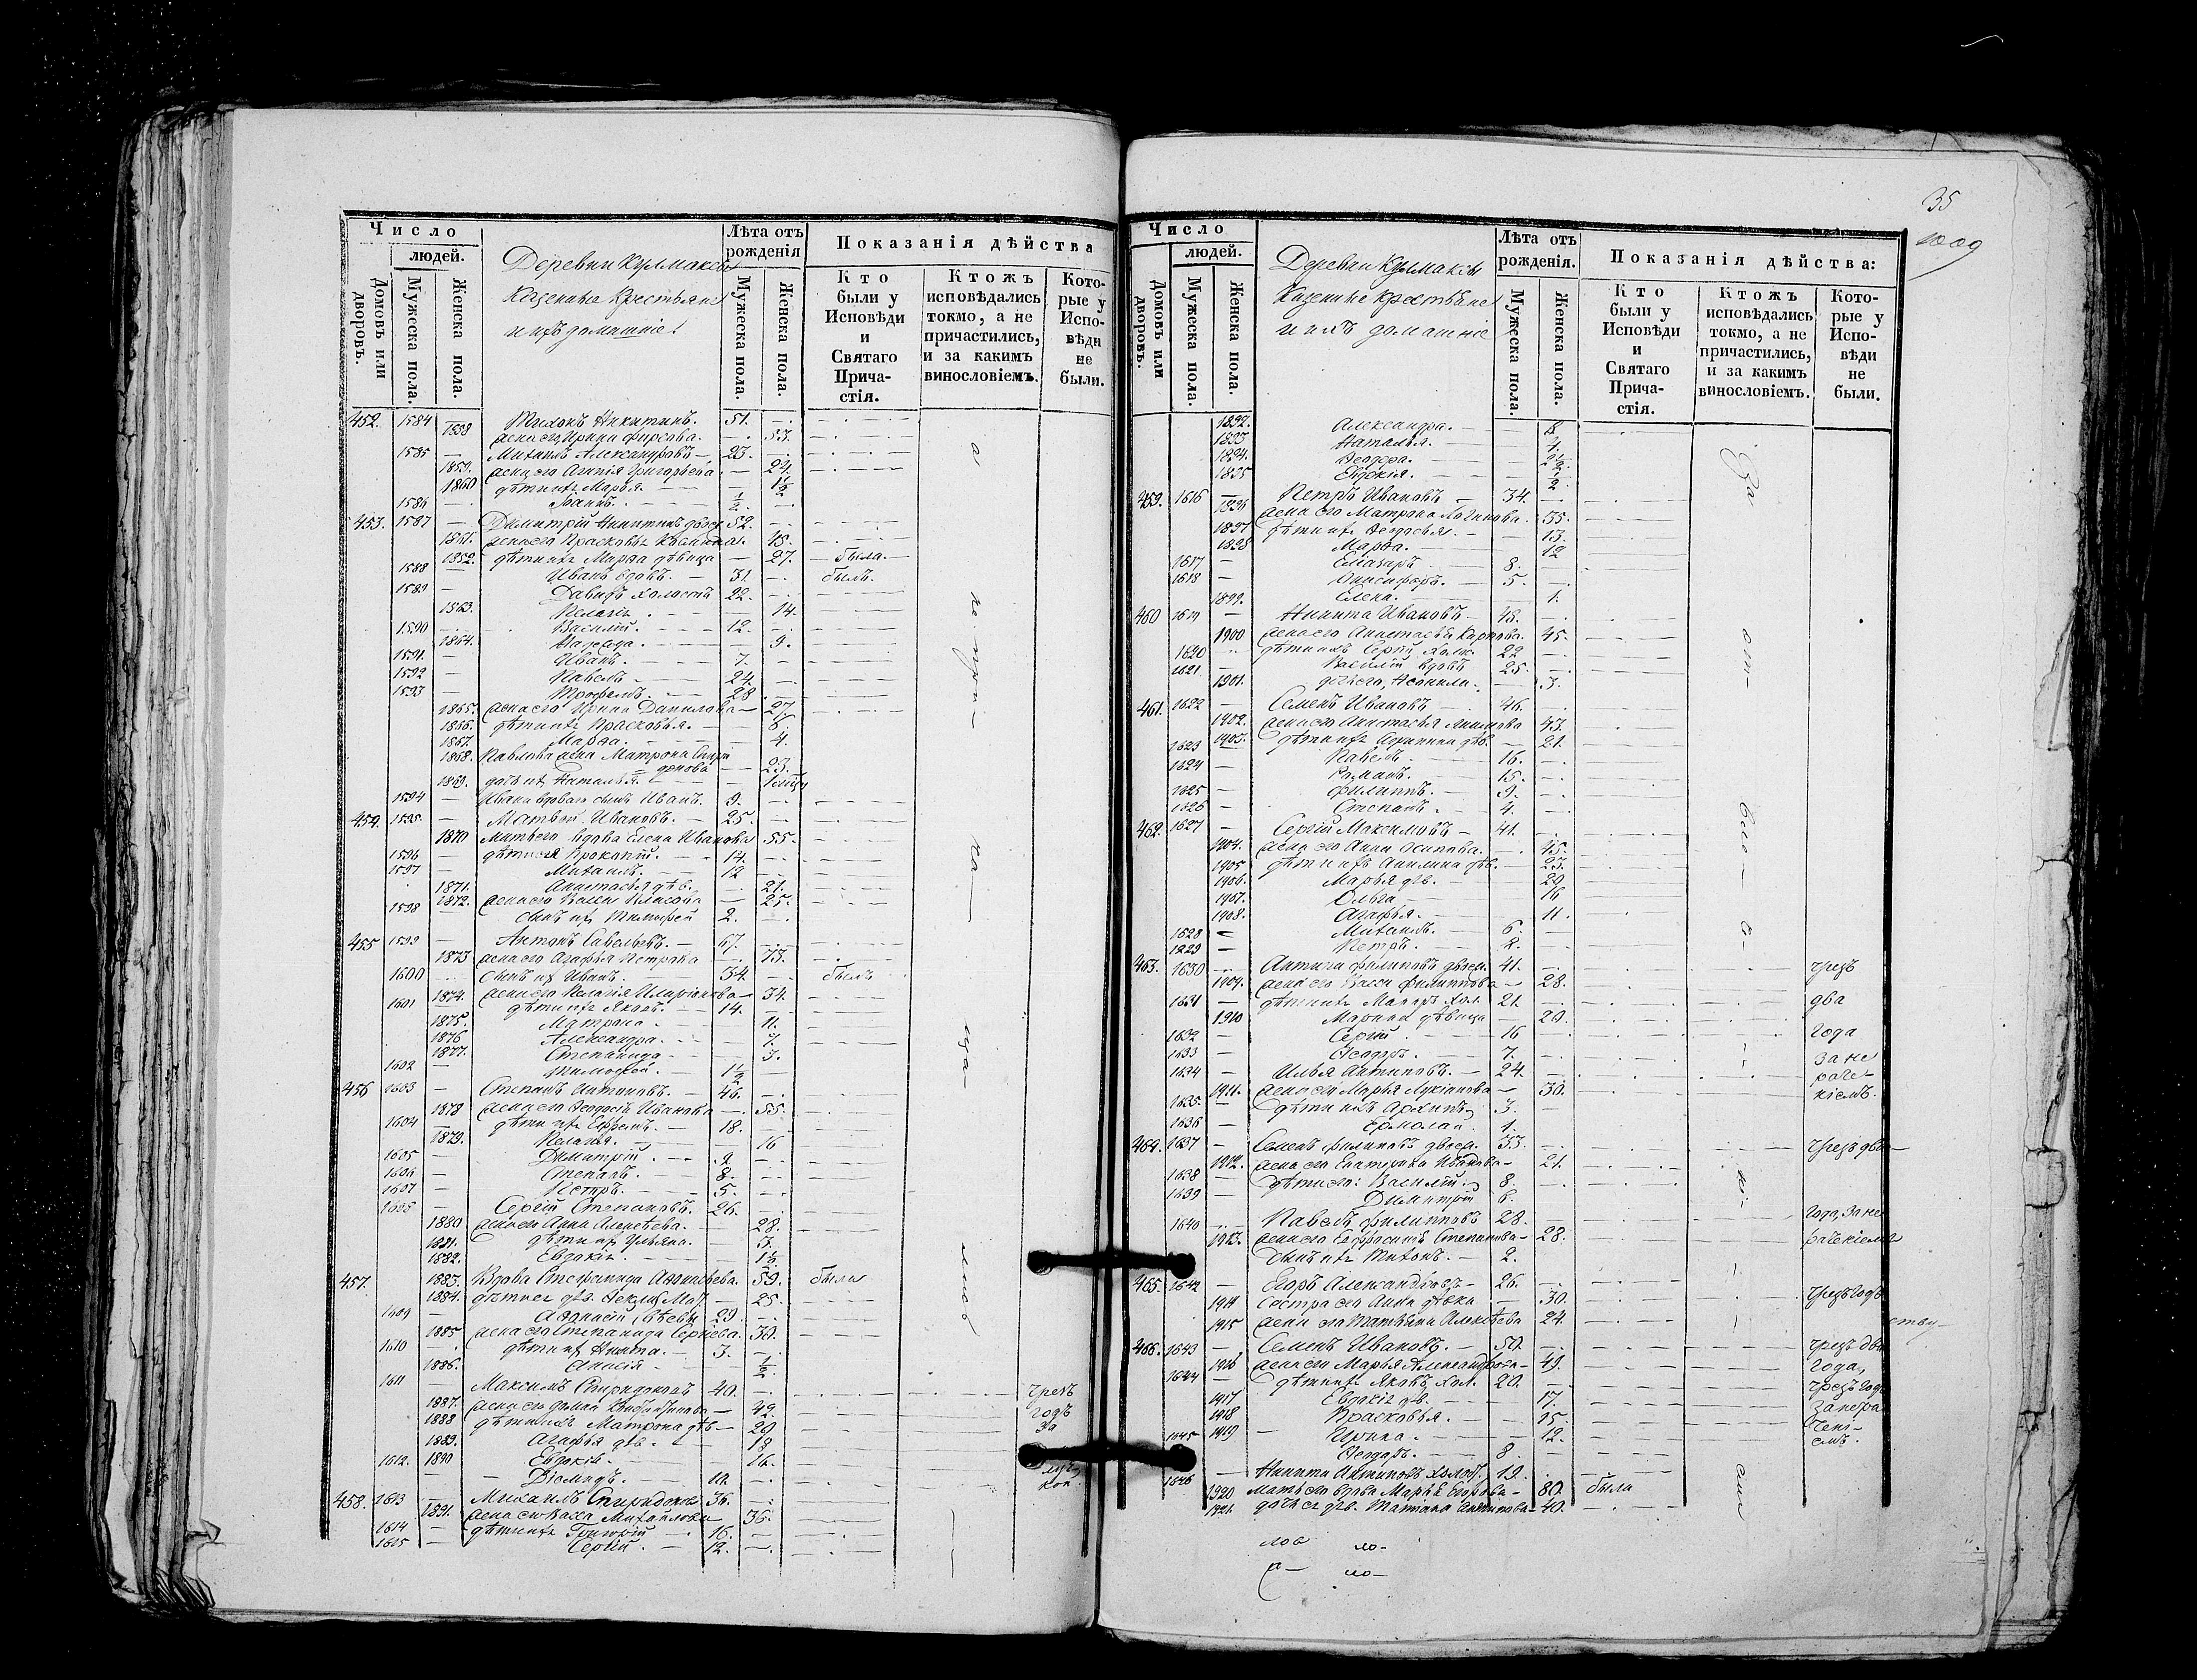 Число
людей.
Домовъ или дворовъ.
Мужеска пола.
Женска пола.
Деревни Кулмаксы
Казенные Крестьяне
и ихъ домашніе
Лѣта отъ рожденія
Мужеска пола.
Женска пола.
Показанія дѣйства
Кто были у Исповѣди и Святаго Прича-стія.
Ктожъ исповѣдались токмо, а не причастились, и за какимъ винословіемъ.
Кото-рые у Испо-вѣди не были.
452. 1584 Никитинъ. 51.
1858 жена его Ирина Фирсова. 53.
1585 — Михаилъ Александровъ 23.
1859. жена его Григорьева 24.
1860 дѣти ихъ Марья 1½
1586 Іоаннъ. ½
453. 1587 — Димитрій Никитинъ 52.
1861. жена его Прасковья 45.
1862. дѣти ихъ Марѳа дѣвица — 27. была.
1588 — Иванъ вдовъ. — 31. былъ.
1589 — Давидъ холостъ 22.
1863. Пелагія. 14.
1590 Василій. 12.
1864. Надежда. 9.
1591. — Иванъ. 7.
1592 — Павелъ 24.
1593 — Трофимъ. 28
1865. жена его Ирина Данилова — 27.
1866. дѣти ихъ Прасковья. 6.
1867. Марѳа. 4.
1868. Павлова жена Матрона Спири
донова 23.
1869. дочь их Наталья.
1594 — Ивана вдоваго сынъ Иванъ. 9.
454. 1595. — Матвей Ивановъ. — 25.
1870 мать его вдова Елена Иванова 55.
1596 — дѣти ея Прокопій. 14.
1597 — Михаилъ. 12
1871. Анастасья дѣв. 21.
1872. жена его Васса Власова 25.
1598 — сынъ их Тимофей 2.
455 1599 — Антонъ Савельевъ. — 67.
1873 жена его Агафья Петрова 73.
1600 сынъ их Иванъ. 34. былъ
1874. жена его Пелагія Иларіонова — 34.
1601 дѣти ихъ Яковъ. 14.
1875. Матрона. 11.
1876 Александра. 7.
1877. Степанида 3.
1602 — Тимофей. 1½
456 1603 — Степанъ Антиповъ. 46.
1878 жена его Ѳеодосья Иванова 55.
1604 — дѣти ихъ Ефремъ. 18.
1879. Пелагія. 16
1605 — Димитрій 9.
1606 — Степанъ. 8.
1607 — Петръ. 5.
1608 — Сергій Степановъ. 26.
1880 жена его Анна Алексѣева. 28.
1881. дѣти их Ульяна. 3.
1882. Евдокія. 1½
457. 1883. Вдова Степанида Аѳонасьева. 59. была
1884. дѣти ея дѣв. Ѳекла 25.
1609 — Аѳанасій 29.
1885 жена его Степанида Сергіева. 30.
1610 дѣти их Никита. 3.
1886. Анисія ½
1611 Максимъ Спиридоновъ 40. чрезъ
1887. жена его 42. годъ
1888 дѣти ихъ Матрона дѣв 20 за
1889. Агафья дѣв. 18
1890 Евдокія. 16.
1612. Діомидъ. 12.
458. 1613 — Михаилъ Спиридоновъ 36.
1891. жена его Васса Михайлова 36.
1614 — дѣти ихъ Григорій 16.
1615 — Сергій. 12.
35
Число
людей.
Домовъ или дворовъ.
Мужеска пола.
Женска пола.
Деревни Кулмаксы
Казенные Крестьяне
и ихъ домашніе
Лѣта отъ рожденія.
Мужеска пола.
Женска пола.
Показанія дѣйства:
Кто были у Исповѣди и Святаго Прича-стія.
Ктожъ исповѣдались токмо, а не причастились, и за какимъ винословіемъ.
Кото-рые у Испо-вѣди не были.
1892. Александра. 8.
1893 Наталья. 4.
1894. Ѳеодора. 2½.
1895 Евдокія. 2
459. 1616 — Петръ Ивановъ 34.
1896 жена его Матрона Логинова. 35.
1897 дѣти ихъ Ѳеодосья. 13.
1898 Марѳа. 12
1617 — Елеазаръ 8.
1618 — Онисифоръ. 5.
1899. Елена. 1.
460 1619 — Никита Ивановъ 43.
1900 жена его Анастасья Карпова. 45.
1620 дѣти ихъ Сергій холос. 22
1621 — Василій вдовъ 25.
1901. дочь его Неонила. 3.
461. 1622 — Семенъ Ивановъ 46.
1902. жена его Анастасья Акимова 43.
1903. дѣти ихъ Акилина дѣв. 21.
1623 Павелъ. 16.
1624 — Романъ. 15.
1625 — Филиппъ. 9.
1626 — Степанъ. 4.
462. 1627 — Сергій Максимовъ 41.
1904. жена его Анна Осипова. 45.
1905 дѣти ихъ Акилина дѣв. 23.
1906. Марья дѣв. 20
1907. Ольга 16
1908. Агафья. 11.
1628 — Михаилъ. 6.
1629 — Петръ. 2.
463. 1630 Антипъ Филиповъ 41. чрезъ
1909. жена его Васса Филиппова 28.
1631 — дѣти ихъ Макаръ хол. 21. два
1910 Марина дѣвица 20.
1632 — Сергій 16 года
1633 — Ѳеодоръ. 7. за не
1634 — Илья Антиповъ. 24. раче-
1911. жена его Марья Лукіанова 30. ніемъ.
1635. — дѣти ихъ Архипъ 3.
1636 — Ермолай. 1.
464. 1637 — Семенъ Филиповъ 33. чрезъ два
1912. жена его Екатерина Иванова 21.
1638 — дѣти его: Василій. 8.
1639 — Димитрій 6.
1640 Павелъ Филипповъ 28. года, за не
1913. жена его Евфросинія Степанова 28. раченіемъ
сынъ их Титонъ. 2.
465. 1642 — Егоръ Александровъ 26. чрезъ годъ
1914 сестра его Анна дѣвка 30.
1915 жена его Татьяна Алексѣева 24.
466. 1643 — Семенъ Ивановъ. 50. чрезъ два
1916 жена его Марья Александрова 49. года,
1644 — дѣти ихъ Яковъ хол. 20. чрезъ годъ
1917 Евдокія дѣв. 17. за нера
1918 Прасковья. 15. чені-
1919 Ирина. 12. емъ.
1645 Ѳеодоръ. 8.
1646 — Никита Антиповъ холос. 19.
1920 мать его вдова Марья Егорова 80. была
1921. дочь ея дѣв. Татіана Антипова 40.